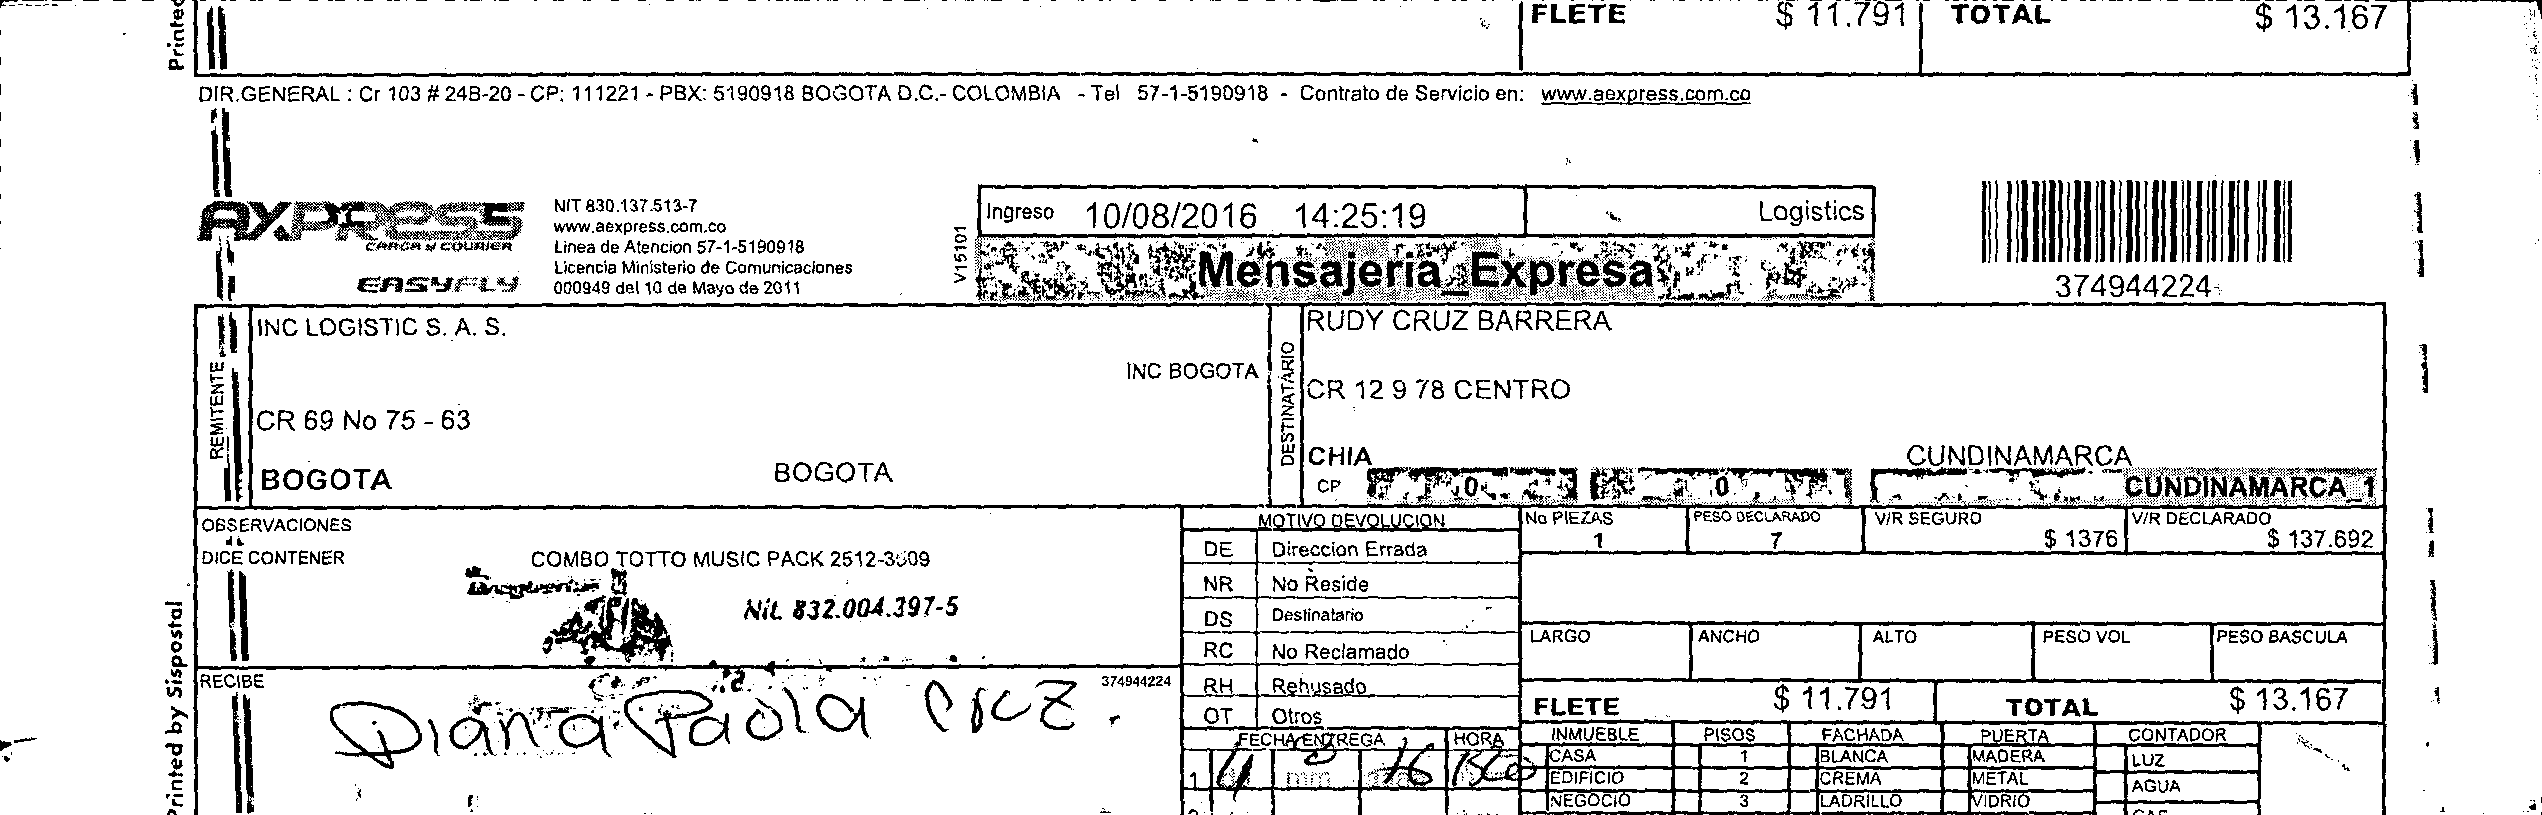 Printed
FLETE $ 11.791 TOTAL $ 13.167
DIR.GENERAL : Cr 103 # 24B-20 - CP: 111221 - PBX: 5190918 BOGOTA D.C.- COLOMBIA - Tel 57-1-5190918 - Contrato de Servicio en: www.aexpress.com.co
AXPRESS
CARGA y COURIER
EASYFLY
NIT 830.137.513-7
www.aexpress.com.co
Linea de Atencion 57-1-5190918
Licencia Ministerio de Comunicaciones
000949 del 10 de Mayo de 2011
V15101
Ingreso 10/08/2016 14:25:19 Logistics
Mensajeria_Expresa
374944224
REMITENTE
INC LOGISTIC S. A. S.
INC BOGOTA
CR 69 No 75 - 63
BOGOTA BOGOTA
DESTINATARIO
RUDY CRUZ BARRERA
CR 12 9 78 CENTRO
CHIA CUNDINAMARCA
CP 0 0 CUNDINAMARCA_1
OBSERVACIONES
DICE CONTENER COMBO TOTTO MUSIC PACK 2512-3609
Nit. 832.004.397-5
MOTIVO DEVOLUCION
DE Direccion Errada
NR No Reside
DS Destinatario
RC No Reclamado
RH Rehusado
OT Otros
No PIEZAS PESO DECLARADO V/R SEGURO V/R DECLARADO
1 7 $ 1376 $ 137.692
LARGO ANCHO ALTO PESO VOL PESO BASCULA
FLETE $ 11.791 TOTAL $ 13.167
Printed by Sispostal
RECIBE 374944224
Diana Paola Cruz.
FECHA ENTREGA HORA
1 mm 16
INMUEBLE PISOS FACHADA PUERTA CONTADOR
CASA 1 BLANCA MADERA LUZ
EDIFICIO 2 CREMA METAL AGUA
NEGOCIO 3 LADRILLO VIDRIO